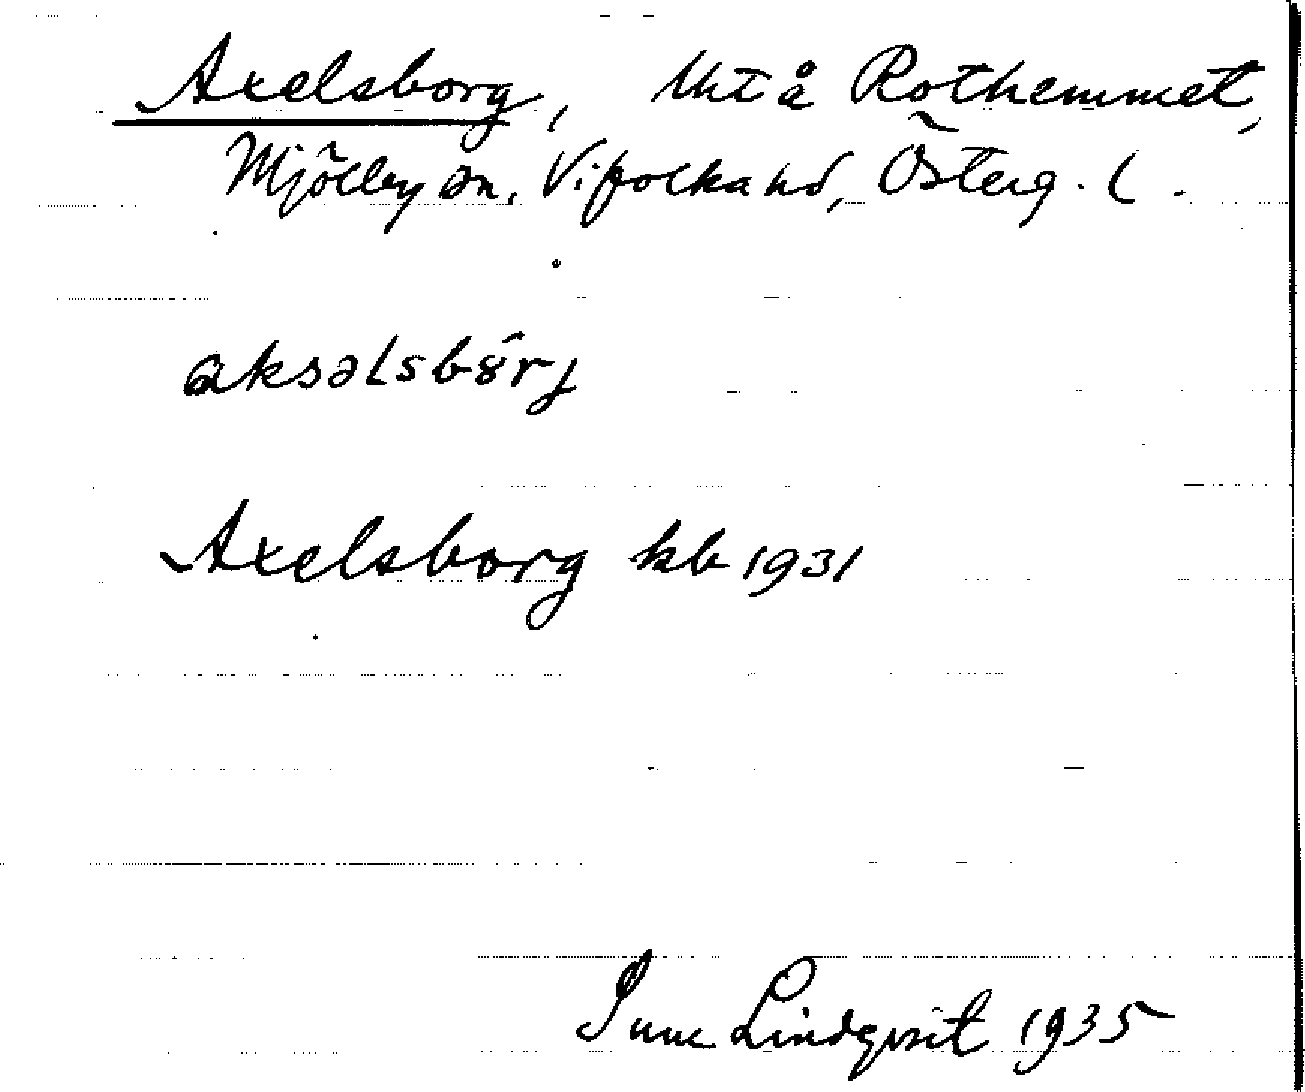 Axelsborg, lht å Rothemmet,
Mjölby sn, Vifolka hd, Österg. l.
aksəlsbörj
Axelsborg kb 1931
Sune Lindqvist 1935